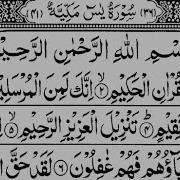 (٣٦) سُوْرَةُ يٰسٓ مَكِّيَّةٌ (٤١)
بِسْمِ اللّٰهِ الرَّحْمٰنِ الرَّحِيْمِ
الْحَكِيْمِ ۝٢ اِنَّكَ لَمِنَ
تَنْزِيْلَ الْعَزِيْزِ الرَّحِيْمِ ۝٥
فَهُمْ غٰفِلُوْنَ ۝٦ لَقَدْ حَقَّ